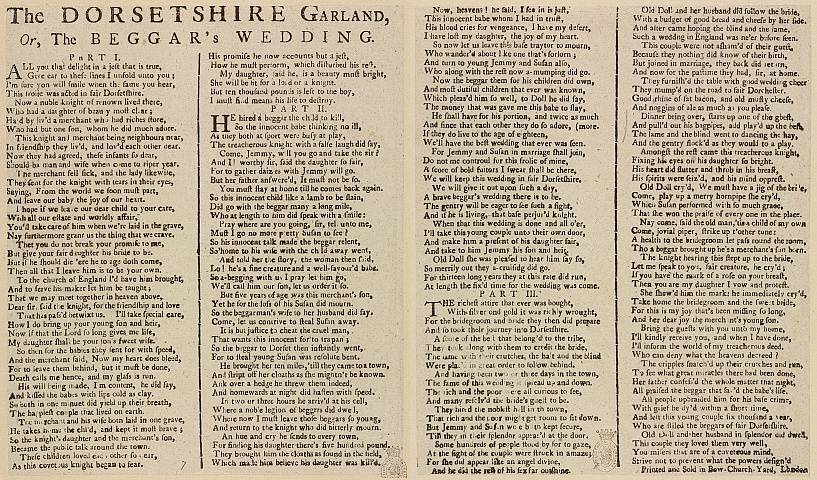 The DORSETSHIRE GARLAND,
Or, The BEGGAR's WEDDING.
PART I.
ALL you that delight in a jest that is true,
Give ear to these lines I unfold unto you;
I'm sure you will smile when the same you hear,
This frolic was acted in fair Dorsetshire.
Now a noble knight of renown lived there,
Who had a daughter of beauty most clear;
Hard by liv'd a merchant who had riches store,
Who had but one son, whom he did much adore.
This knight and merchant being neighbours near,
In friendship they liv'd, and lov'd each other dear.
Now they had agreed, these infants so dear,
Should be man and wife when come to riper year.
The merchant fell sick, and the lady likewise,
They sent for the knight with tears in their eyes,
Saying, From the world we soon must part,
And leave our baby the joy of our heart.
I hope if we leave our dear child to your care,
With all our estate and worldly affair,
You'll take care of him when we're laid in the grave,
Nay furthermore grant us the thing that we crave.
That you do not break your promise to me,
But give your fair daughter his bride to be.
But if he should die ere he to age doth come,
Then all that I leave him is to be your own.
To the church of England I'd have him brought,
And to serve his maker let him be taught;
That we may meet together in heaven above,
Dear sir, said the knight, for the friendship and love
That has pass'd betwixt us, I'll take special care,
How I do bring up your young son and heir,
Now if that the Lord so long gives me life,
My daughter shall be your son's sweet wife.
So then for the babies they sent for with speed,
And the merchant said, Now my heart does bleed,
For to leave them behind, but it must be done,
Death calls me hence, and my glass is run.
His will being made, I'm content, he did say,
And kissed the babes with lips cold as clay.
So both in one minute did yield up their breath,
The happiest couple that lived on earth.
The merchant and his wife both laid in one grave,
He takes home the child, and kept it most brave;
So the knight's daughter and the merchant's son,
Became the public talk around the town.
These children loved each other so dear,
As this covetous knight began to fear.
His promise he now accounts but a jest,
How he must perform, which disturbed his rest.
My daughter, said he, is a beauty most bright,
She will be fit for a lord or a knight.
But ten thousand pounds is left to the boy,
I must find means his life to destroy.
PART II.
HE hired a beggar the child to kill,
So the innocent babe thinking no ill,
As they both at sport were busy at play,
The treacherous knight with a false laugh did say,
Come, Jemmy, will you go and take the air?
And I? worthy sir, said the daughter so fair,
For to gather daizes with Jemmy will go.
But her father answer'd, It must not be so.
You must stay at home till he comes back again.
So this innocent child like a lamb to be slain,
Did go with the beggar many a long mile,
Who at length to him did speak with a smile:
Pray where are you going, sir, tell unto me,
Must I go no more pretty Susan to see?
So his innocent talk made the beggar relent,
So home to his wife with the child away went,
And told her the story, the woman then said,
Lo! he's a fine creature and a well-favour'd babe.
So a-begging with us I pray let him go,
We'll call him our son, let us order it so.
But five years of age was this merchant's son,
Yet he for the loss of his Susan did mourn.
So the beggarman's wife to her husband did say,
Come, let us contrive to steal Susan away.
It is but justice to cheat the cruel man,
That wants this innocent for to trapan;
So the beggar to Dorset then instantly went,
For to steal young Susan was resolute bent.
He brought her ten miles, 'till they came to a town,
And stript off her cloaths as she mightn't be known.
And over a hedge he threw them indeed,
And homewards at night did hasten with speed.
In two or three hours he arriv'd at his cell,
Where a noble legion of beggars did dwell,
Where now I must leave those beggars so young,
And return to the knight who did bitterly mourn.
An hue and cry he sends to every town,
For finding his daughter there's five hundred pound.
They brought him the cloaths as found in the field,
Which made him believe his daughter was kill'd.
Now, heavens! he said, I see in is just,
This innocent babe whom I had in trust,
His blood cries for vengeance, I have my desert,
I have lost my daughter, the joy of my heart.
So now let us leave this base traytor to mourn,
Who wander'd about like one that's forlorn;
And turn to young Jemmy and Susan also,
Who along with the rest now a-mumping did go.
Now the beggar them for his children did own,
And most dutiful children that ever was known,
Which pleas'd him so well, to Doll he did say,
The money that was gave me this babe to slay,
He shall have for his portion, and twice as much
And since each other they do so adore, (more.
If they do live to the age of eighteen,
We'll have the best wedding that ever was seen.
For Jemmy and Susan in marriage shall join,
Do not controul for this frolic of mine,
A score of bold suitors I swear shall be there,
We will keep this wedding in fair Dorsetshire.
We will give it out upon such a day,
A brave beggar's wedding there is to be.
The gentry will be eager to see such a sight,
And if he is living, that base perjur'd knight.
When that this wedding is done and all o'er,
I'll take this young couple unto their own door,
And make him a present of his daughter fair,
And take to him Jemmy his son and heir,
Old Doll she was pleased to hear him say so,
So merrily out they a-cruising did go.
For thirteen long years they at this rate did run,
At length the fix'd time for the wedding was come.
PART III.
THE richest attire that ever was bought,
With silver and gold it was richly wrought,
For the bridegroom and bride they then did prepare
And so took their journey into Dorsetshire.
A score of the best that belong'd to the tribe,
They took along with them to credit the bride,
The lame with their crutches, the halt and the blind
Were plac'd in great order to follow behind.
And having been two or three days in the town,
The fame of this wedding is spread up and down.
The rich and the poor were all curious to see,
And many resort'd the bride's guest to be.
They hired the noblest hall in th town,
That rich and the poor might get room to sit down.
But Jemmy and Susan were both kept secure,
'Till they in their splendor appear'd at the door.
Some hundreds of people stood by for to gaze,
At the sight of the couple were struck in amaze;
For she did appear like an angel divine,
And he did the rest of his sex far outshine.
Old Doll and her husband did follow the bride,
With a budget of good bread and cheese by her side.
And after came hoping the blind and the lame,
Such a wedding in England was ne'er before seen.
This couple were not asham'd of their guest,
Because they nothing did know of their birth,
But joined in marriage, they back did return,
And now for the pastime they had, sir, at home.
They furnish'd the table with good wedding cheer
They mump'd on the road to fair Dorchester.
Good store of fat bacon, and old musty cheese,
And noggins of ale as much as you please.
Dinner being over, starts up one of the guest,
And pull'd out his bagpipes, and play'd up the best,
The lame and the blind went to dancing the hay,
And the gentry flock'd as they would to a play.
Amongst the rest came this treacherous knight,
Fixing his eyes on his daughter so bright.
His heart did flutter and throb in his breast,
His spirits were seiz'd, and his mind opprest.
Old Doll cry'd, We must have a jig of the bride,
Come, play up a merry hornpipe she cry'd,
Which Susan performed with so much grace,
That she won the praise of every one in the place.
Nay come, said the old man, 'tis a child of my own
Come, jovial piper, strike up t'other tune:
A health to the bridegroom let pass round the room,
Tho a beggar brought up he's a merchant's son born.
The knight hearing this stept up to the bride,
Let me speak to you, fair creature, he cry'd;
If you have the mark of a rose on your breast,
Then you are my daughter I vow and protest.
She shew'd him the mark; he immediately cry'd,
Take home the bridegroom and the sweet bride,
For this is my joy that's been missing so long,
And her dear joy the merchant's young son.
Bring the guests with you unto my home,
I'll kindly receive you, and when I have done,
I'll inform the world of my treacherous deed,
Who can deny what the heavens decreed?
The cripples snatch'd up their crutches and run,
To see what great miracles there had been done,
Her father confess'd the whole matter that night,
All praised the beggar that sav'd the babe's life.
All people upbraided him for his base crime,
With grief he dy'd within a short time,
And left this young couple six thousand a year,
Who are stiled the beggars of fair Dorsetshire.
Old Doll and her husband in splendor did dwell,
This couple they loved them very well,
You misers that are of a covetous mind,
Strive not to prevent what the powers design'd
Printed and Sold in Bow-Church-Yard, London